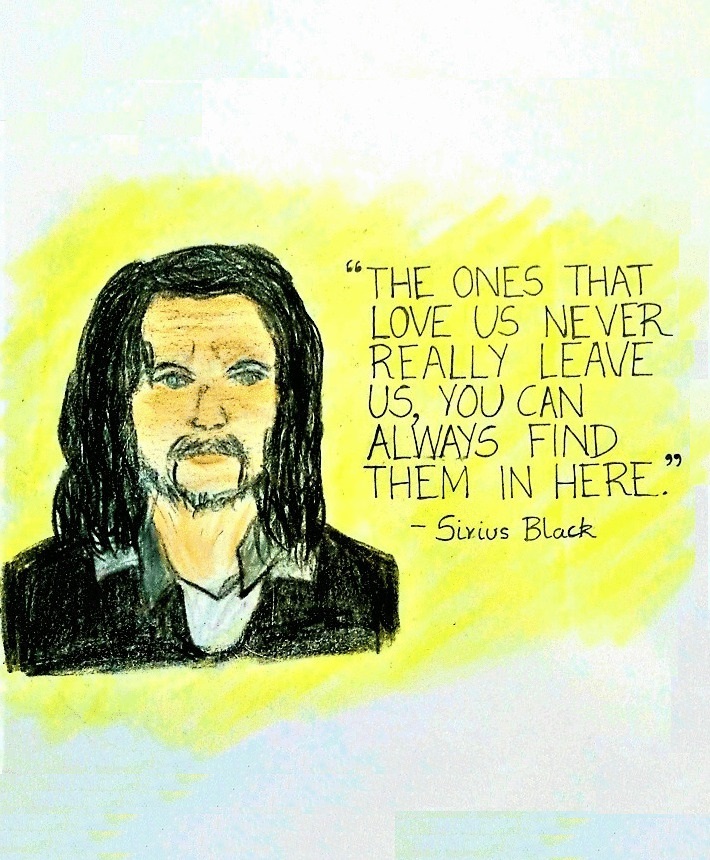 “THE ONES THAT
LOVE US NEVER
REALLY LEAVE
US, YOU CAN
ALWAYS FIND
THEM IN HERE.”
- Sirius Black